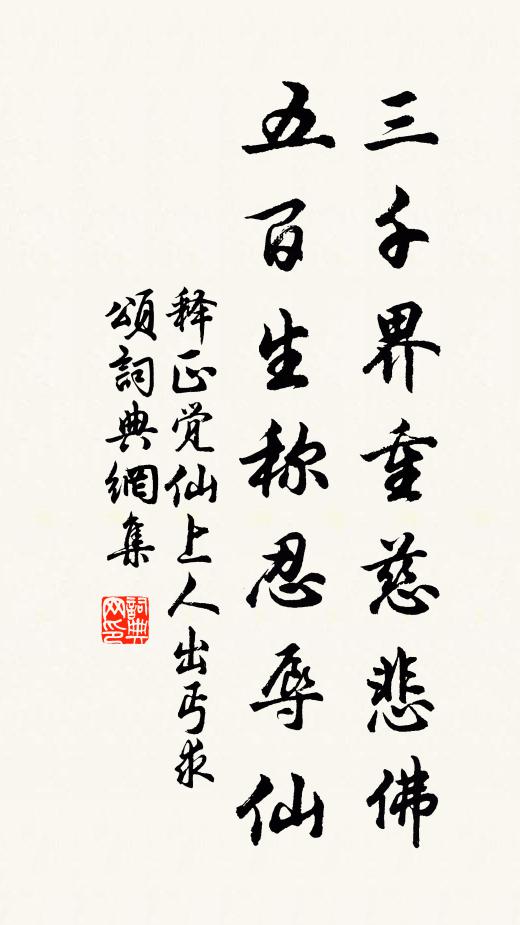 三千界重慈悲佛
五百生称忍辱仙
释正觉仙上人出丐求
頌詞典網集
詞典
网印